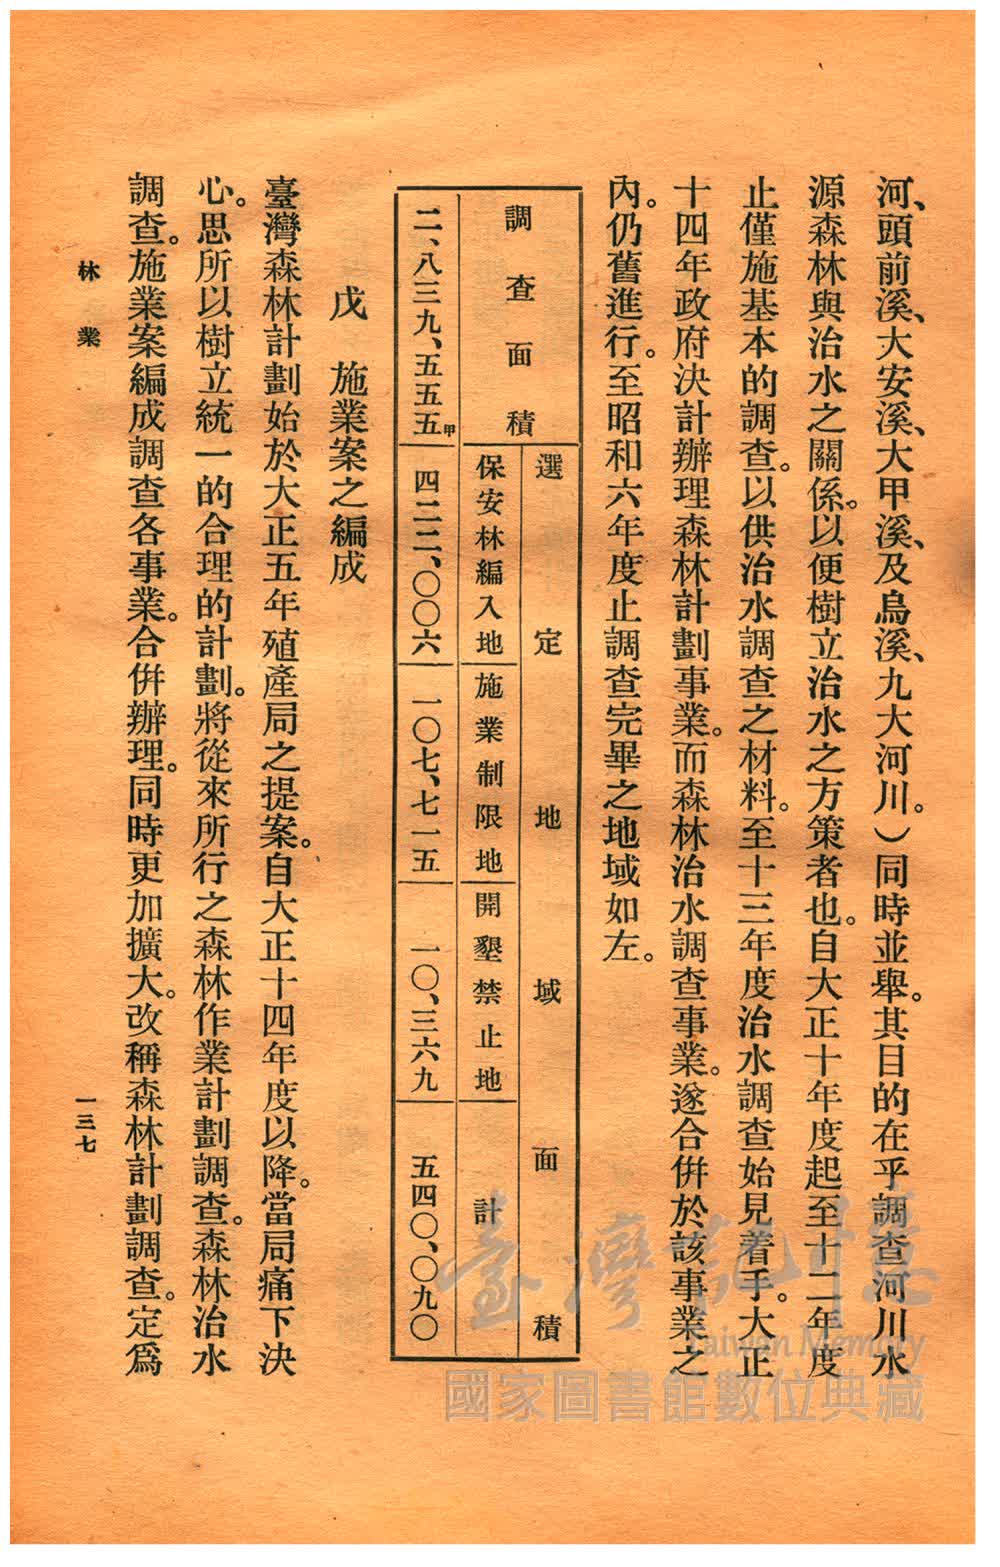 河、頭前溪、大安溪、大甲溪、及烏溪、九大河川。)同時並舉。其目的在乎調查河川水
源森林與治水之關係。以便樹立治水之方策者也。自大正十年度起至十二年度
止僅施基本的調查。以供治水調查之材料。至十三年度治水調查始見着手。大正
十四年政府決計辦理森林計劃事業。而森林治水調查事業。遂合併於該事業之
內。仍舊進行。至昭和六年度止調查完畢之地域如左。
調查面積
選定地域面積
保安林編入地
施業制限地
開墾禁止地
計
二、八三九、五五五甲
四二二、〇〇六
一〇七、七一五
一〇、三六九
五四〇、〇九〇
戊 施業案之編成
臺灣森林計劃始於大正五年殖產局之提案。自大正十四年度以降。當局痛下決
心。思所以樹立統一的合理的計劃。將從來所行之森林作業計劃調查。森林治水
調查。施業案編成調查各事業。合併辦理。同時更加擴大。改稱森林計劃調查。定爲
林業
一三七
臺灣記憶
Taiwan Memory
國家圖書館數位典藏